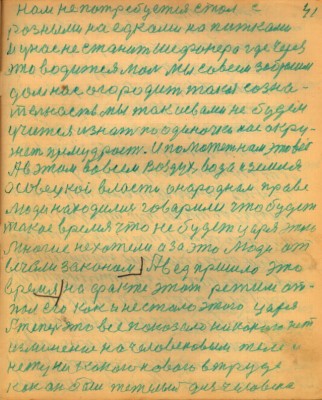 41
нам не потребуется стол с
разными на едками напитками
и у нас не станит шефонера где через
это водится мол. мы совсем забросим
дом нас огородит такая созна-
тельность мы так и свами не будем
учится и знать по одиночки нас окру-
жет при мудрост. и поможет нам это всё
А в этом во всем воздух вода и земля
о совецкой власти о народнам праве
люди находилис говорили что будет
такое время что не будет царя этко
многие не хотели а за это люди от
вечали законам А вед пришло это
время на факте этот режим от-
жыл его как и нестало этого царя
А теперь это все показало никакого нет
изминение на человеческом теле и
нету ни какой нового в труде
как он был тежелый для человека